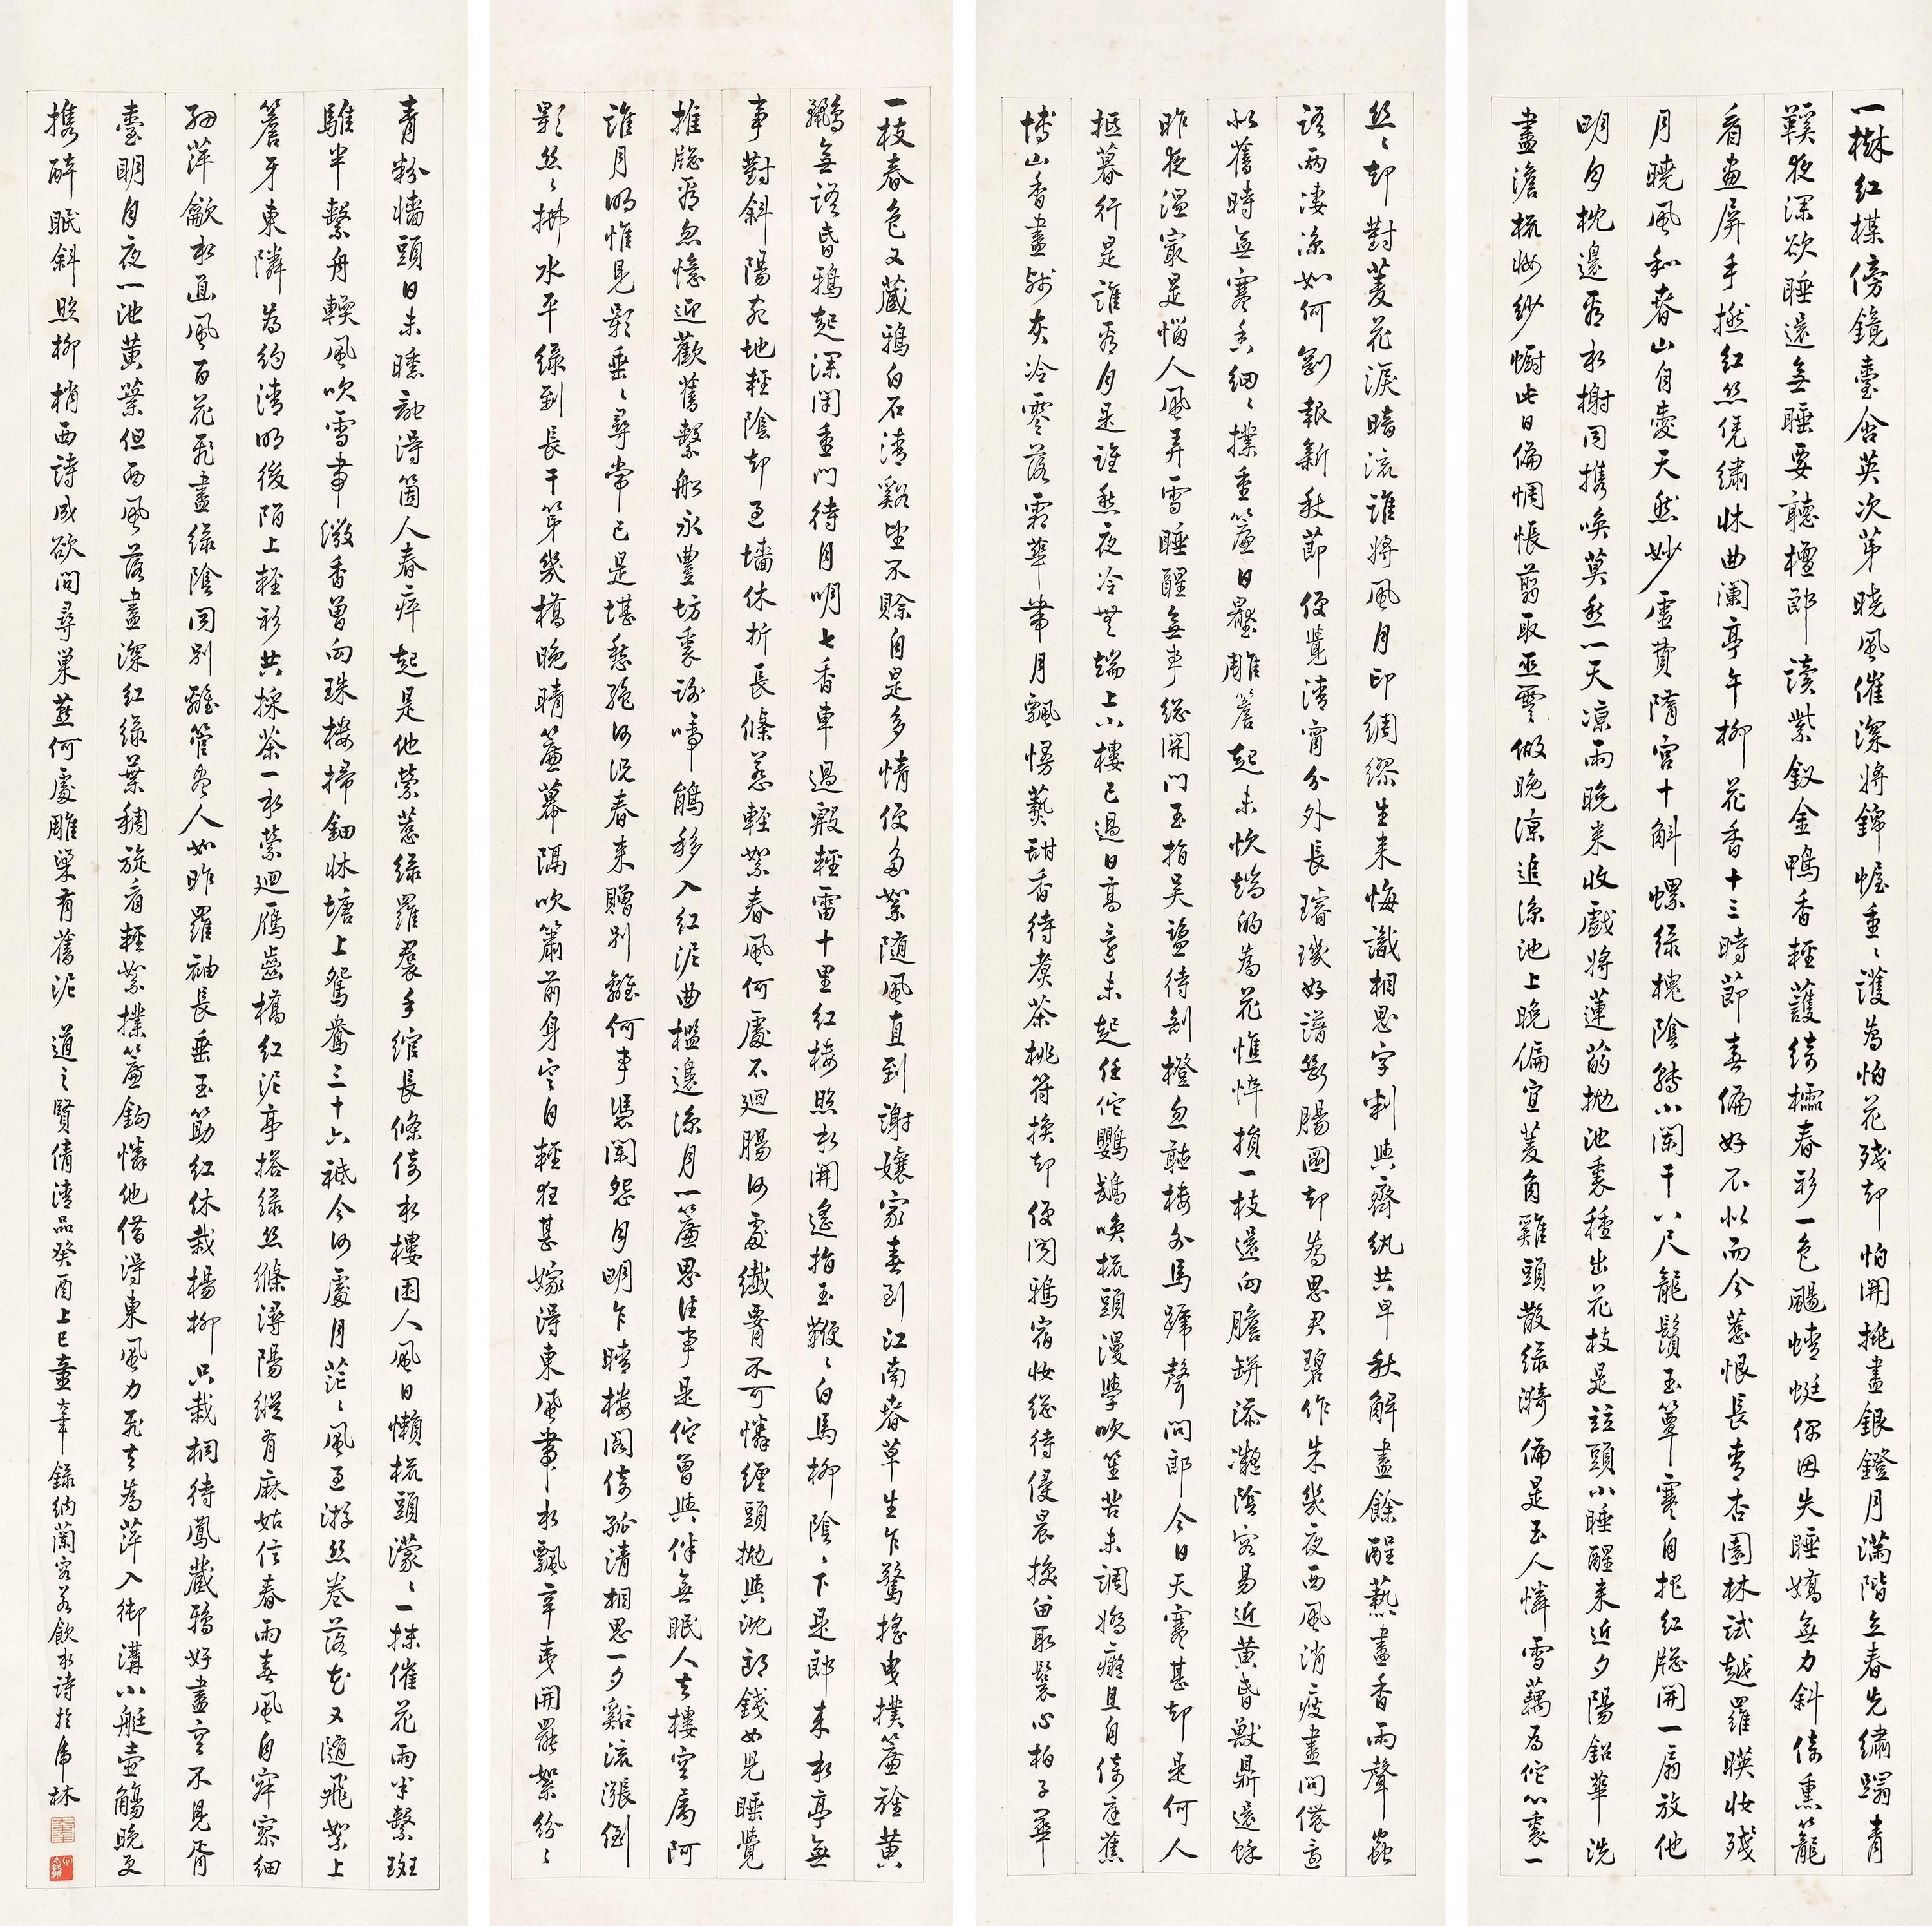 一樹紅楳傍鏡臺含英次第曉風催深將錦幄重〻護為怕花殘却怕開挑盡銀鐙月滿階立春先繡踏青
鞵夜深欲睡還無睡要聽檀郎讀紫釵金鴨香輕護綺櫺春衫一色颺蜻蜓偶因失睡嬌無力斜倚熏籠
看畫屏手撚紅絲凭繡牀曲闌亭午柳花香十三時節春偏好不似而今惹恨長青杏園林試越羅暎妝殘
月曉風和春山自愛天然妙虛費隋宮十斛螺綠槐陰轉小闌干八尺龍鬚玉簟寒自把紅牕開一扇放他
明月枕邊看水榭同攜喚莫愁一天涼雨晚來收戲將蓮菂拋池裏種出花枝是竝頭小睡醒來近夕陽鉛華洗
盡澹梳妝紗幮此日偏惆悵翦取巫雲做晚涼追涼池上晚偏宜菱角雞頭散綠漪偏是玉人憐雪藕為佗心裏一
絲〻却對菱花淚暗流誰將風月印綢繆生來悔識相思字判與齊紈共早秋解盡餘酲爇盡香雨聲蟲
語兩淒涼如何剛報新秋節便覺清宵分外長璿璣好譜斷腸圖却為思君碧作朱幾夜西風消瘦盡問儂還
似舊時無寒香細〻撲重簾日壓雕簷起未忺端的為花憔悴損一枝還向膽缾添凝陰容易近黃昏獸鼎還餘
昨夜溫寂是惱人風弄雪睡醒無事總關門玉指吳鹽待剖橙忽聽樓外馬蹄聲問郎今日天寒甚却是何人
抵暮行是誰看月是誰愁夜冷無端上小樓已過日高還未起任佗鸚鵡喚梳頭漫學吹笙苦未調嬌癡且自倚庭蕉
博山香盡殘灰冷零落霜華帶月飄慢爇甜香待煮茶桃符換却便聞鴉宿妝總待侵晨換留取鬟心柏子華
一枝春色又藏鴉白石清谿望不賒自是多情便多絮隨風直到謝孃家春到江南春草生乍驚搖曳撲簾旌黃
鸝無語昏鴉起深閉重門待月明七香車過殷輕雷十里紅樓照水開遙指玉鞭〻白馬柳陰〻下是郎來水亭無
事對斜陽宛地輕陰却過墻休折長條惹輕絮春風何處不迴腸何處纖腰不可憐纏頭拋與沈郎錢如兒睡覺
推牕看忽憶迎歡舊繫船永豐坊裏謝啼鵑移入紅泥曲檻邊涼月一簾思往事是佗曾與伴無眠人去樓空屬阿
誰月明惟見影垂〻尋常已是堪愁絕何況春來贈別離何事憑闌怨月明乍晴樓閣倚孤清相思一夕谿流漲倒
影絲〻拂水平綠到長干第幾橋晚晴簾幕隔吹簫前身定自輕狂甚嫁得東風帶水飄辛夷開罷絮紛〻
青粉墻頭日未曛認得箇人春瘁起是他縈惹綠羅裙手綰長條倚水樓困人風日懶梳頭濛〻一抹催花雨半繫斑
騅半繫舟輭風吹雪帶微香曾向珠樓掃鈿牀塘上鴛鴦三十六祗今何處月茫〻風過游絲卷落花又隨飛絮上
簷牙東隣為約清明後陌上輕衫共採茶一水縈迴雁齒橋紅泥亭搭綠絲絛潯陽縱有麻姑信春雨春風自寂寥細
細萍龡水面風百花飛盡綠陰同別離管盡人如昨羅袖長垂玉筯紅休栽楊柳只栽桐待鳳藏鴉好盡空不見胥
臺明月夜一池黃葉但西風落盡深紅綠葉稠旋看輕絮撲簾鉤憐他借得東風力飛去為萍入御溝小艇壺觴晚更
攜醉眠斜照柳梢西詩成欲問尋巢燕何處雕梁有舊泥 道之賢倩清品癸酉上巳童辛錄納蘭容若飲水詩於虎林